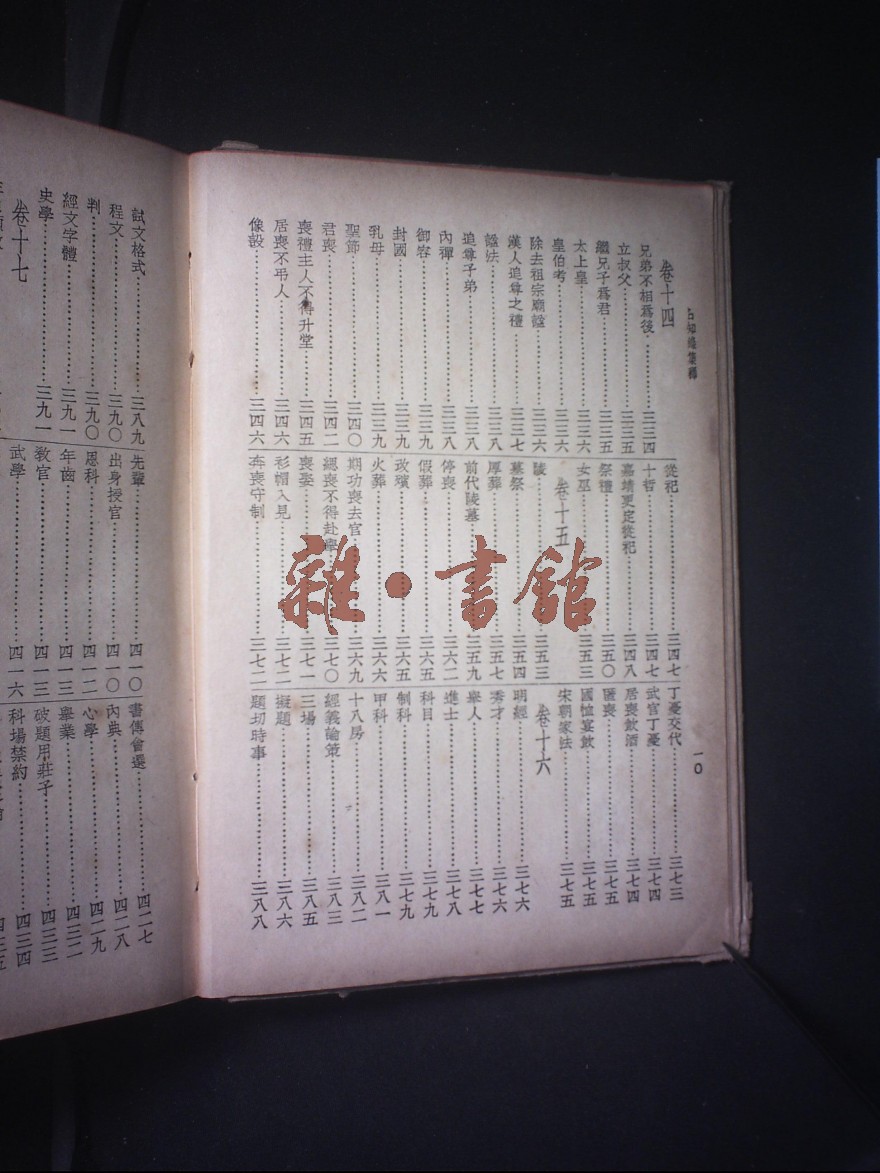 日知錄集釋
一〇
卷十四
兄弟不相爲後……三三四
立叔父……三三五
繼兄子爲君……三三五
太上皇……三三六
皇伯考……三三六
除去祖宗廟諡……三三六
漢人追尊之禮……三三七
諡法……三三八
追尊子弟……三三八
內禪……三三八
御容……三三九
封國……三三九
乳母……三三九
聖節……三四〇
君喪……三四二
喪禮主人不得升堂……三四五
居喪不弔人……三四六
像設……三四六
從祀……三四七
十哲……三四七
嘉靖更定從祀……三四八
祭禮……三五〇
女巫……三五三
卷十五
陵……三五三
墓祭……三五四
厚葬……三五七
前代陵墓……三五九
停喪……三六二
假葬……三六五
改殯……三六五
火葬……三六六
期功喪去官……三六九
緦喪不得赴舉……三七〇
喪娶……三七一
衫帽入見……三七二
奔喪守制……三七二
丁憂交代……三七三
武官丁憂……三七四
居喪飲酒……三七四
匿喪……三七五
國恤宴飲……三七五
宋朝家法……三七五
卷十六
明經……三七六
秀才……三七六
舉人……三七七
進士……三七八
科目……三七九
制科……三七九
甲科……三八一
十八房……三八二
經義論策……三八三
三場……三八五
擬題……三八六
題切時事……三八八
試文格式……三八九
程文……三九〇
判……三九〇
經文字體……三九一
史學……三九一
卷十七
先輩……四一〇
出身授官……四一〇
恩科……四一二
年齒……四一三
教官……四一三
武學……四一六
書傳會選……四二七
內典……四二八
心學……四二九
舉業……四三二
破題用莊子……四三三
科場禁約……四三四
四三五
雜·書館